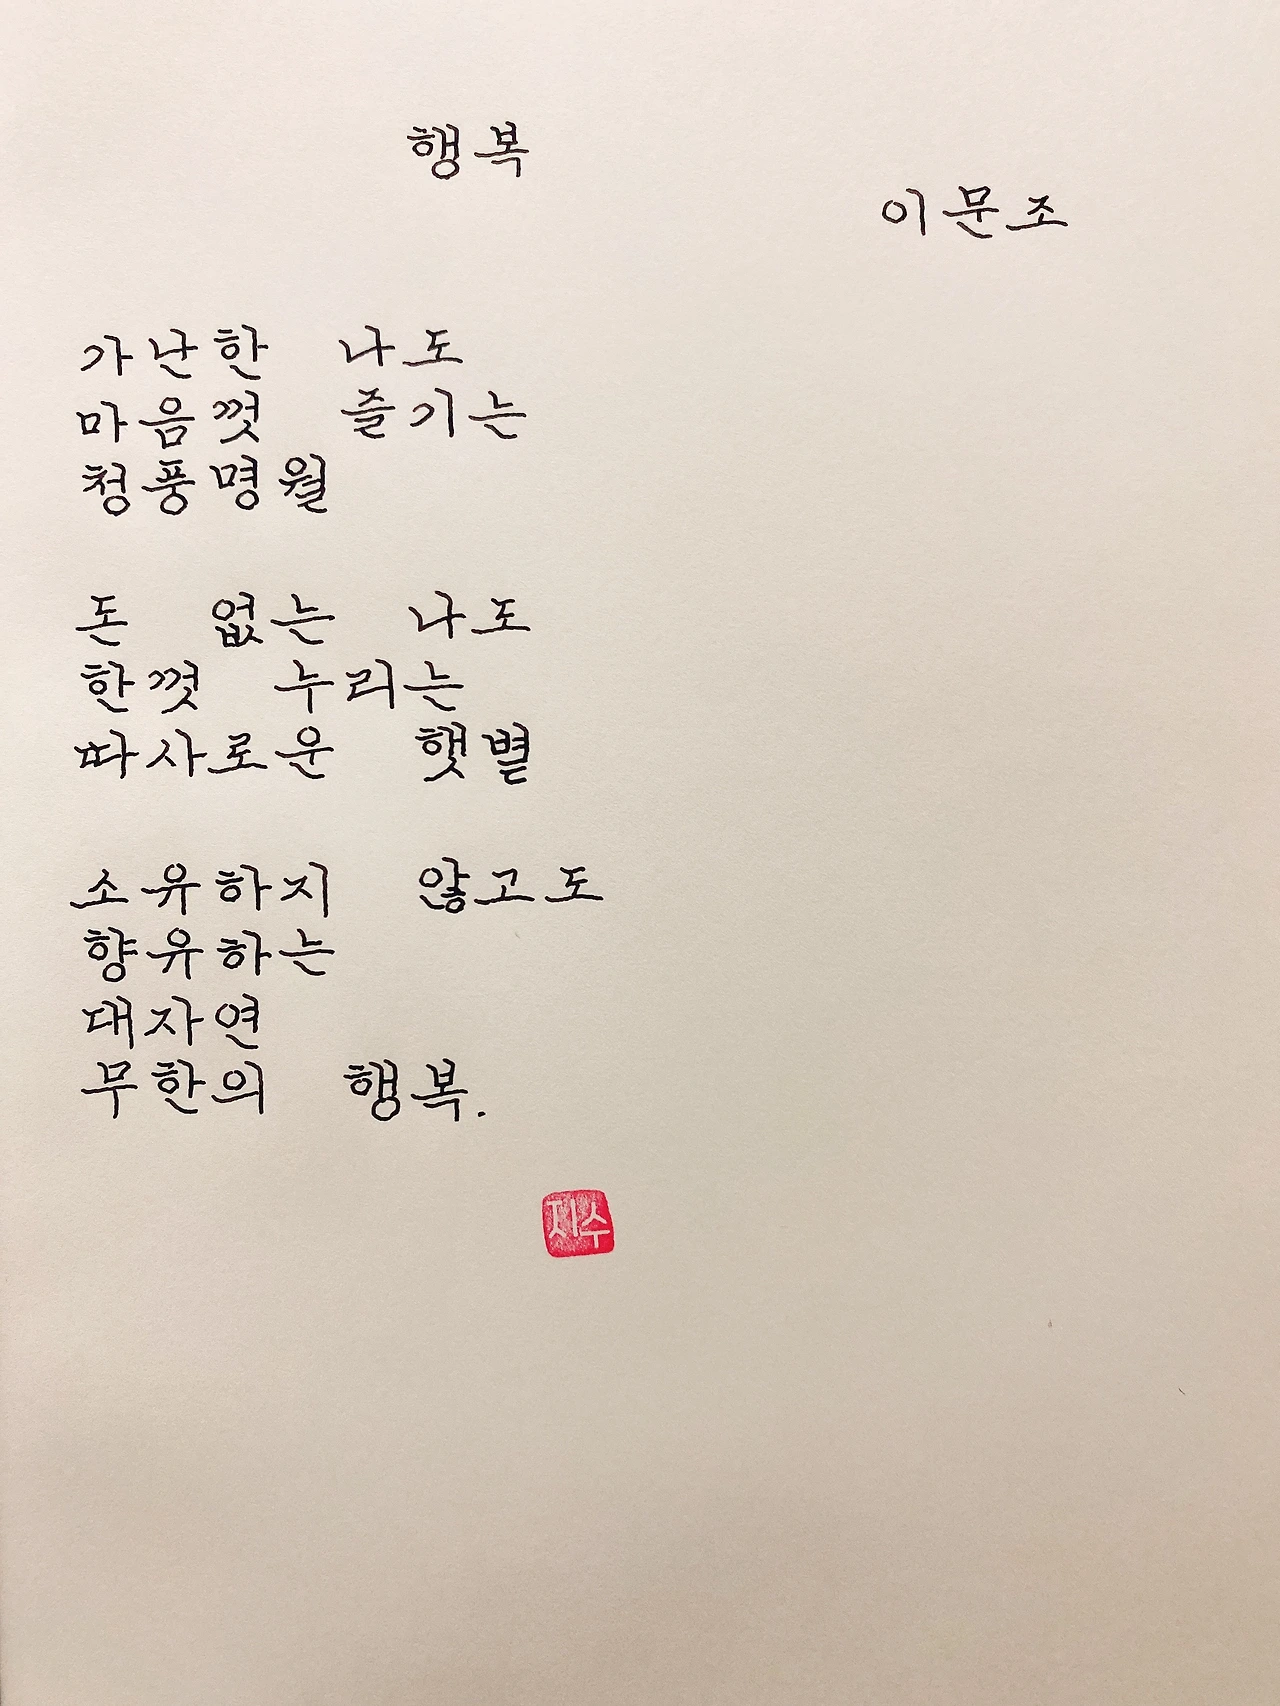 행복
이문조
가난한 나도
마음껏 즐기는
청풍명월
돈 없는 나도
한껏 누리는
따사로운 햇볕
소유하지 않고도
향유하는
대자연
무한의 행복.
지수